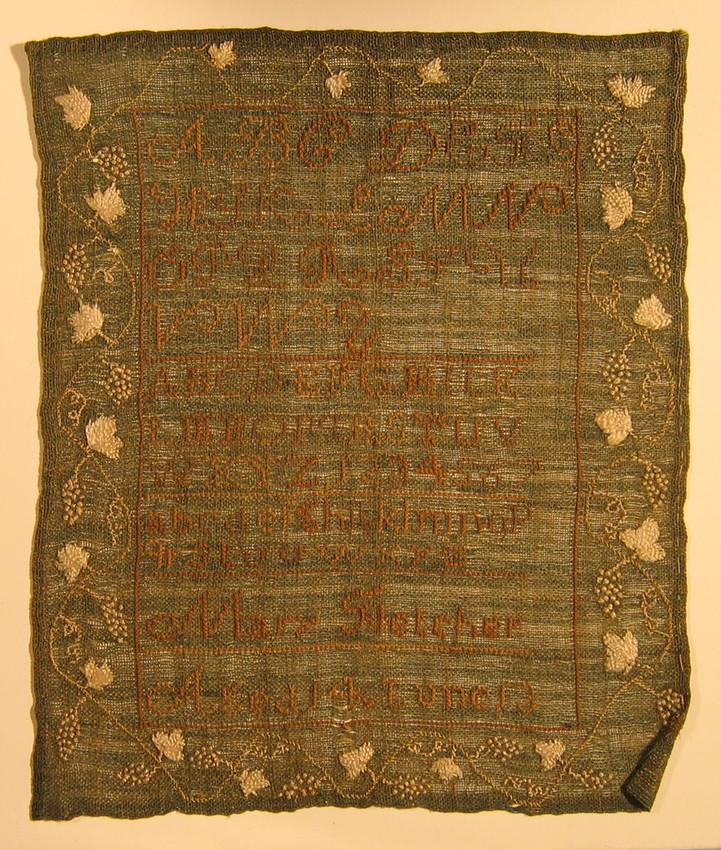 A B C D E F G
H I K L M N
O P Q R S T U
V W
A B C D E F G H I K
L M N O P Q R S T U V
W X Y Z 1 2 3 4 5 6 7
a b c d e f g h i k l m n o p
q r s t u v w
Mary Fletcher
Aged June 13